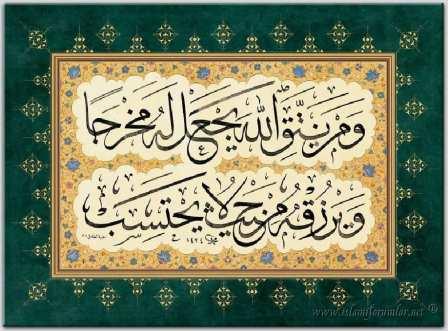 وَمَنْ يَتَّقِ اللّٰهَ يَجْعَلْ لَهُ مَخْرَجًا
وَيَرْزُقْهُ مِنْ حَيْثُ لَا يَحْتَسِبُ
www.islamiforumlar.net